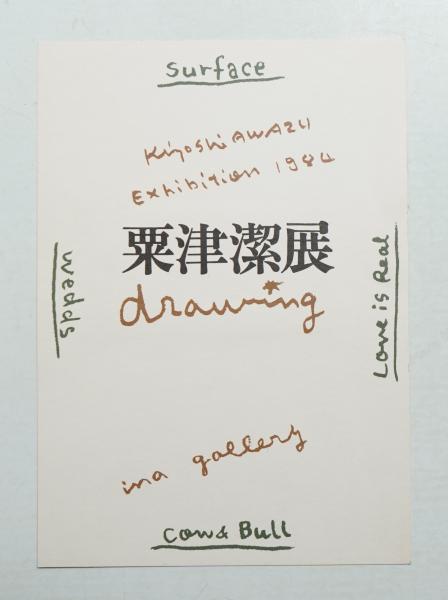 surface
Kiyoshi AWAZU
Exhibition 1984
粟津潔展
drawing
wedds
Love is Real
ina gallery
cow & Bull